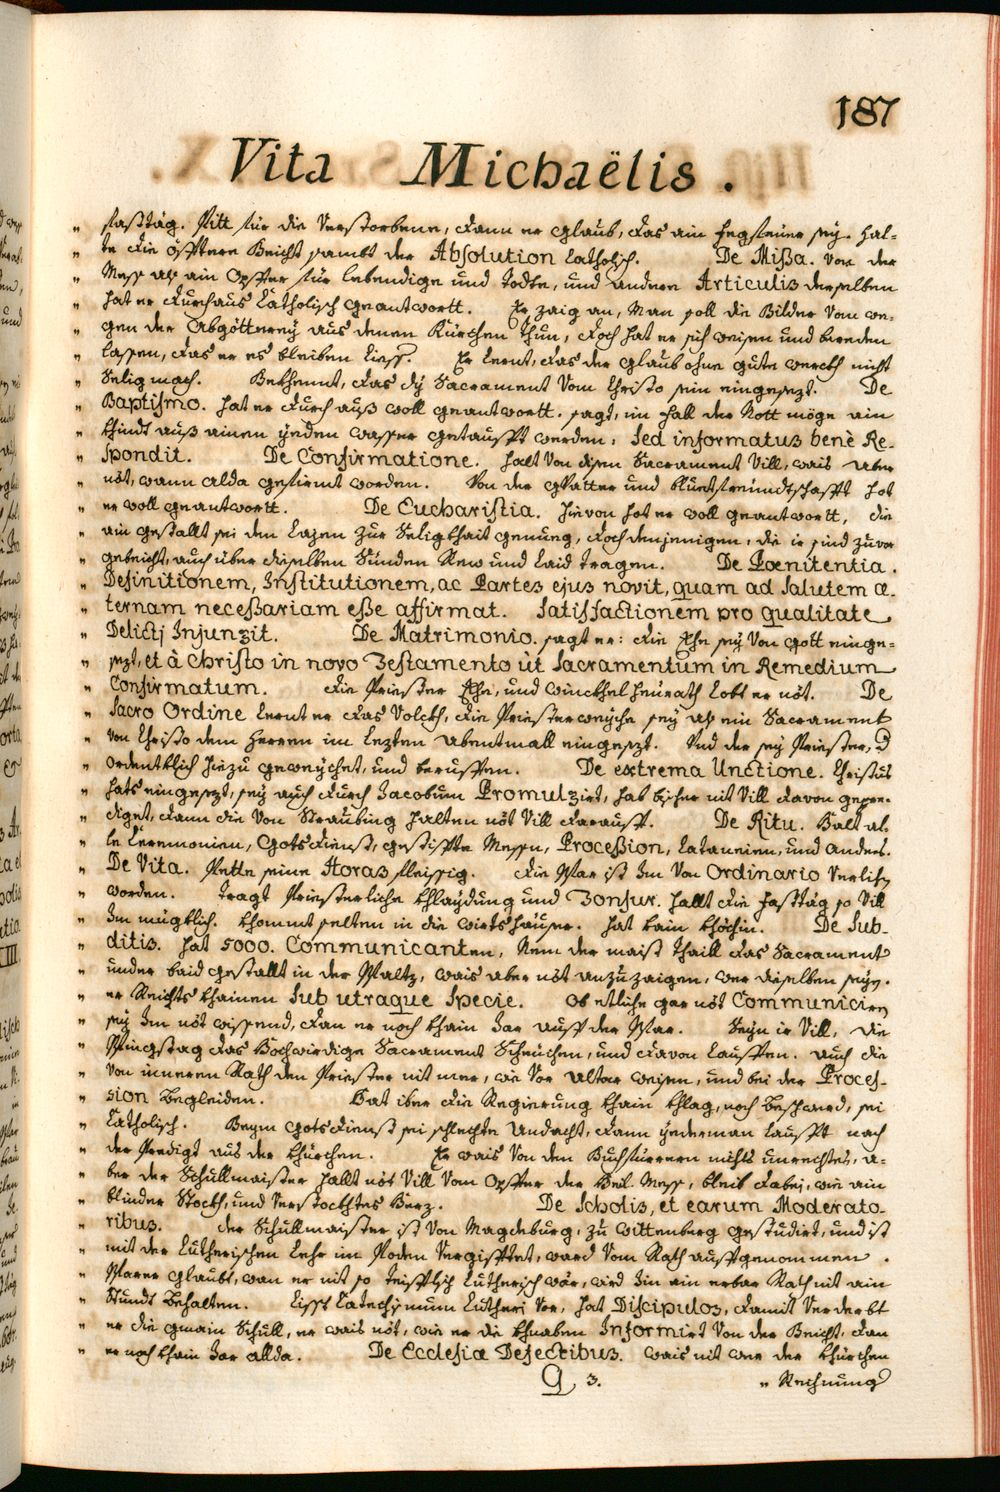 187
Vita Michaëlis.
„ fasttäg. Bitt für die Verstorbene, dann er glaub, das ain fegfeuer sey. Hal-
„ te die öfftere Beicht sambt der Absolution Catholisch. De Mißa. Von der
„ Mess als ain Opffer für lebendige und todte, und andere Articulis derselben
„ hat er durchaus Catholisch geantwortt. Er zaig an, Man soll die Bilder vom we-
„ gen der Abgötterey aus denen Kürchen thun, doch hat er sich weisen und bereden
„ lassen, das er es bleiben liess. Er lernt, das der glaub ohne güte werckh nicht
„ Selig mach. Bekhennt, das dÿ Sacrament Vom Christo sein eingesezt. De
„ Baptismo. hat er durch auß woll geantwortt. sagt, im fall der Nott möge ain
„ khindt auß ainen yeden wasser getaufft werden, Sed informatus benè Re-
„ spondit. De Confirmatione. halt Von disen Sacrament Vill, wais aber
„ nöt, wann alda gefirmt worden. Von der gVatter und bluetsfreündtschafft hat
„ er woll geantwortt. De Eucharistia. hievon hat er woll geantwortt, die
„ ain gestallt sei den Layen zur Seligkhait genung, doch denjenigen, die ir sind zuvor
„ gebeicht, auch über dieselben Sünden Rew und Laid tragen. De Pœnitentia.
„ Definitionem, Institutionem, ac Partes ejus novit, quam ad Salutem æ-
„ ternam neceßariam eße affirmat. Satisfactionem pro qualitate
„ Delictj Injunxit. De Matrimonio. sagt er: die Ehe sey Von Gott einge-
„ sezt, et à Christo in novo Testamento ùt Sacramentum in Remedium
„ Confirmatum. die Priester Ehe, und winckhel heürath lobt er nöt. De
„ Sacro Ordine lernt er das Volckh, die Priesterweyche seÿ als ein Sacrament
„ von Christo dem Herren im lezten abentmall eingesezt. Und der seÿ Priester, d
„ ordentblich hiezu geweÿchet, und berueffen. De extrema Unctione. Christus
„ hats eingesezt, seÿ auch durch Jacobum Promulzirt, hab bisher nit Vill davon gepre-
„ diget, dann die Von Straubing halten nöt Vill darauff. De Ritu. Halt al-
„ le Ceremonien, Gotsdienst, gestiffte Messen, Proceßion, Lataneien, und Anders.
„ De Vita. Bette seine Horas fleissig. die Pfar ist Im Von Ordinario Verlihen
„ worden. Tragt Priesterliche khlaÿdung und Tonsur. hallt die fasttäg so Vill
„ Im müglich. khommt selten in die wirtshäuser. hat kain khöchin. De Sub-
„ ditis. hat 5000. Communicanten, Nem der maist thaill das Sacrament
„ under baid gestallt in der Pfaltz, wais aber nöt anzuzaigen, wer dieselben seyn.
„ er Reichts khainen Sub utraque Specie. Ob etliche gar nöt Communiciren
„ seÿ Im nöt wissend, dan er noch khain Jar auff der Pfar. Seyn ir Vill, die
„ Pfingstag das Hochwirdige Sacrament Scheuchen, und davon lauffen. auch die
„ Von inneren Rath den Priester nit mer, wie Vor alter weisen, und bei der Proces-
„ sion begleiden. Hat iber die Regierung khain khlag, noch beschward, sei
„ Catholisch. Beym Gotsdienst sei schlechte andacht, dann yederman laufft nach
„ der Predigt aus der khürchen. Er wais Von den Buchfürrern nichts unrechtes, a-
„ ber der Schullmaister hallt nöt Vill Vom Opffer der Heil. Mess, bleib dabei, wie ain
„ blinder Stockh, und verstockhtes Herz. De Scholis, et earum Moderato-
„ ribus. der Schullmaister ist Von Magdeburg, zu Wittenberg gestudirt, und ist
„ mit der Lutherischen Lehr im Boden Vergifftet, ward Vom Rath auffgenommen.
„ Pfarer glaubt, wan er nit so teifflisch Lutherisch wär, wird Im ein erbar Rath nit ain
„ Stundt behalten. Lisst Catechismum Lutheri Vor, hat Discipulos, damit Verderbt
„ er die gmain Schull, er wais nöt, wie er die khnaben Informirt Von der Beicht, dan
„ er noch khain Jar allda. De Ecclesiæ Defectibus. Wais nit wer der khürchen
Q 3. „ Reichnung